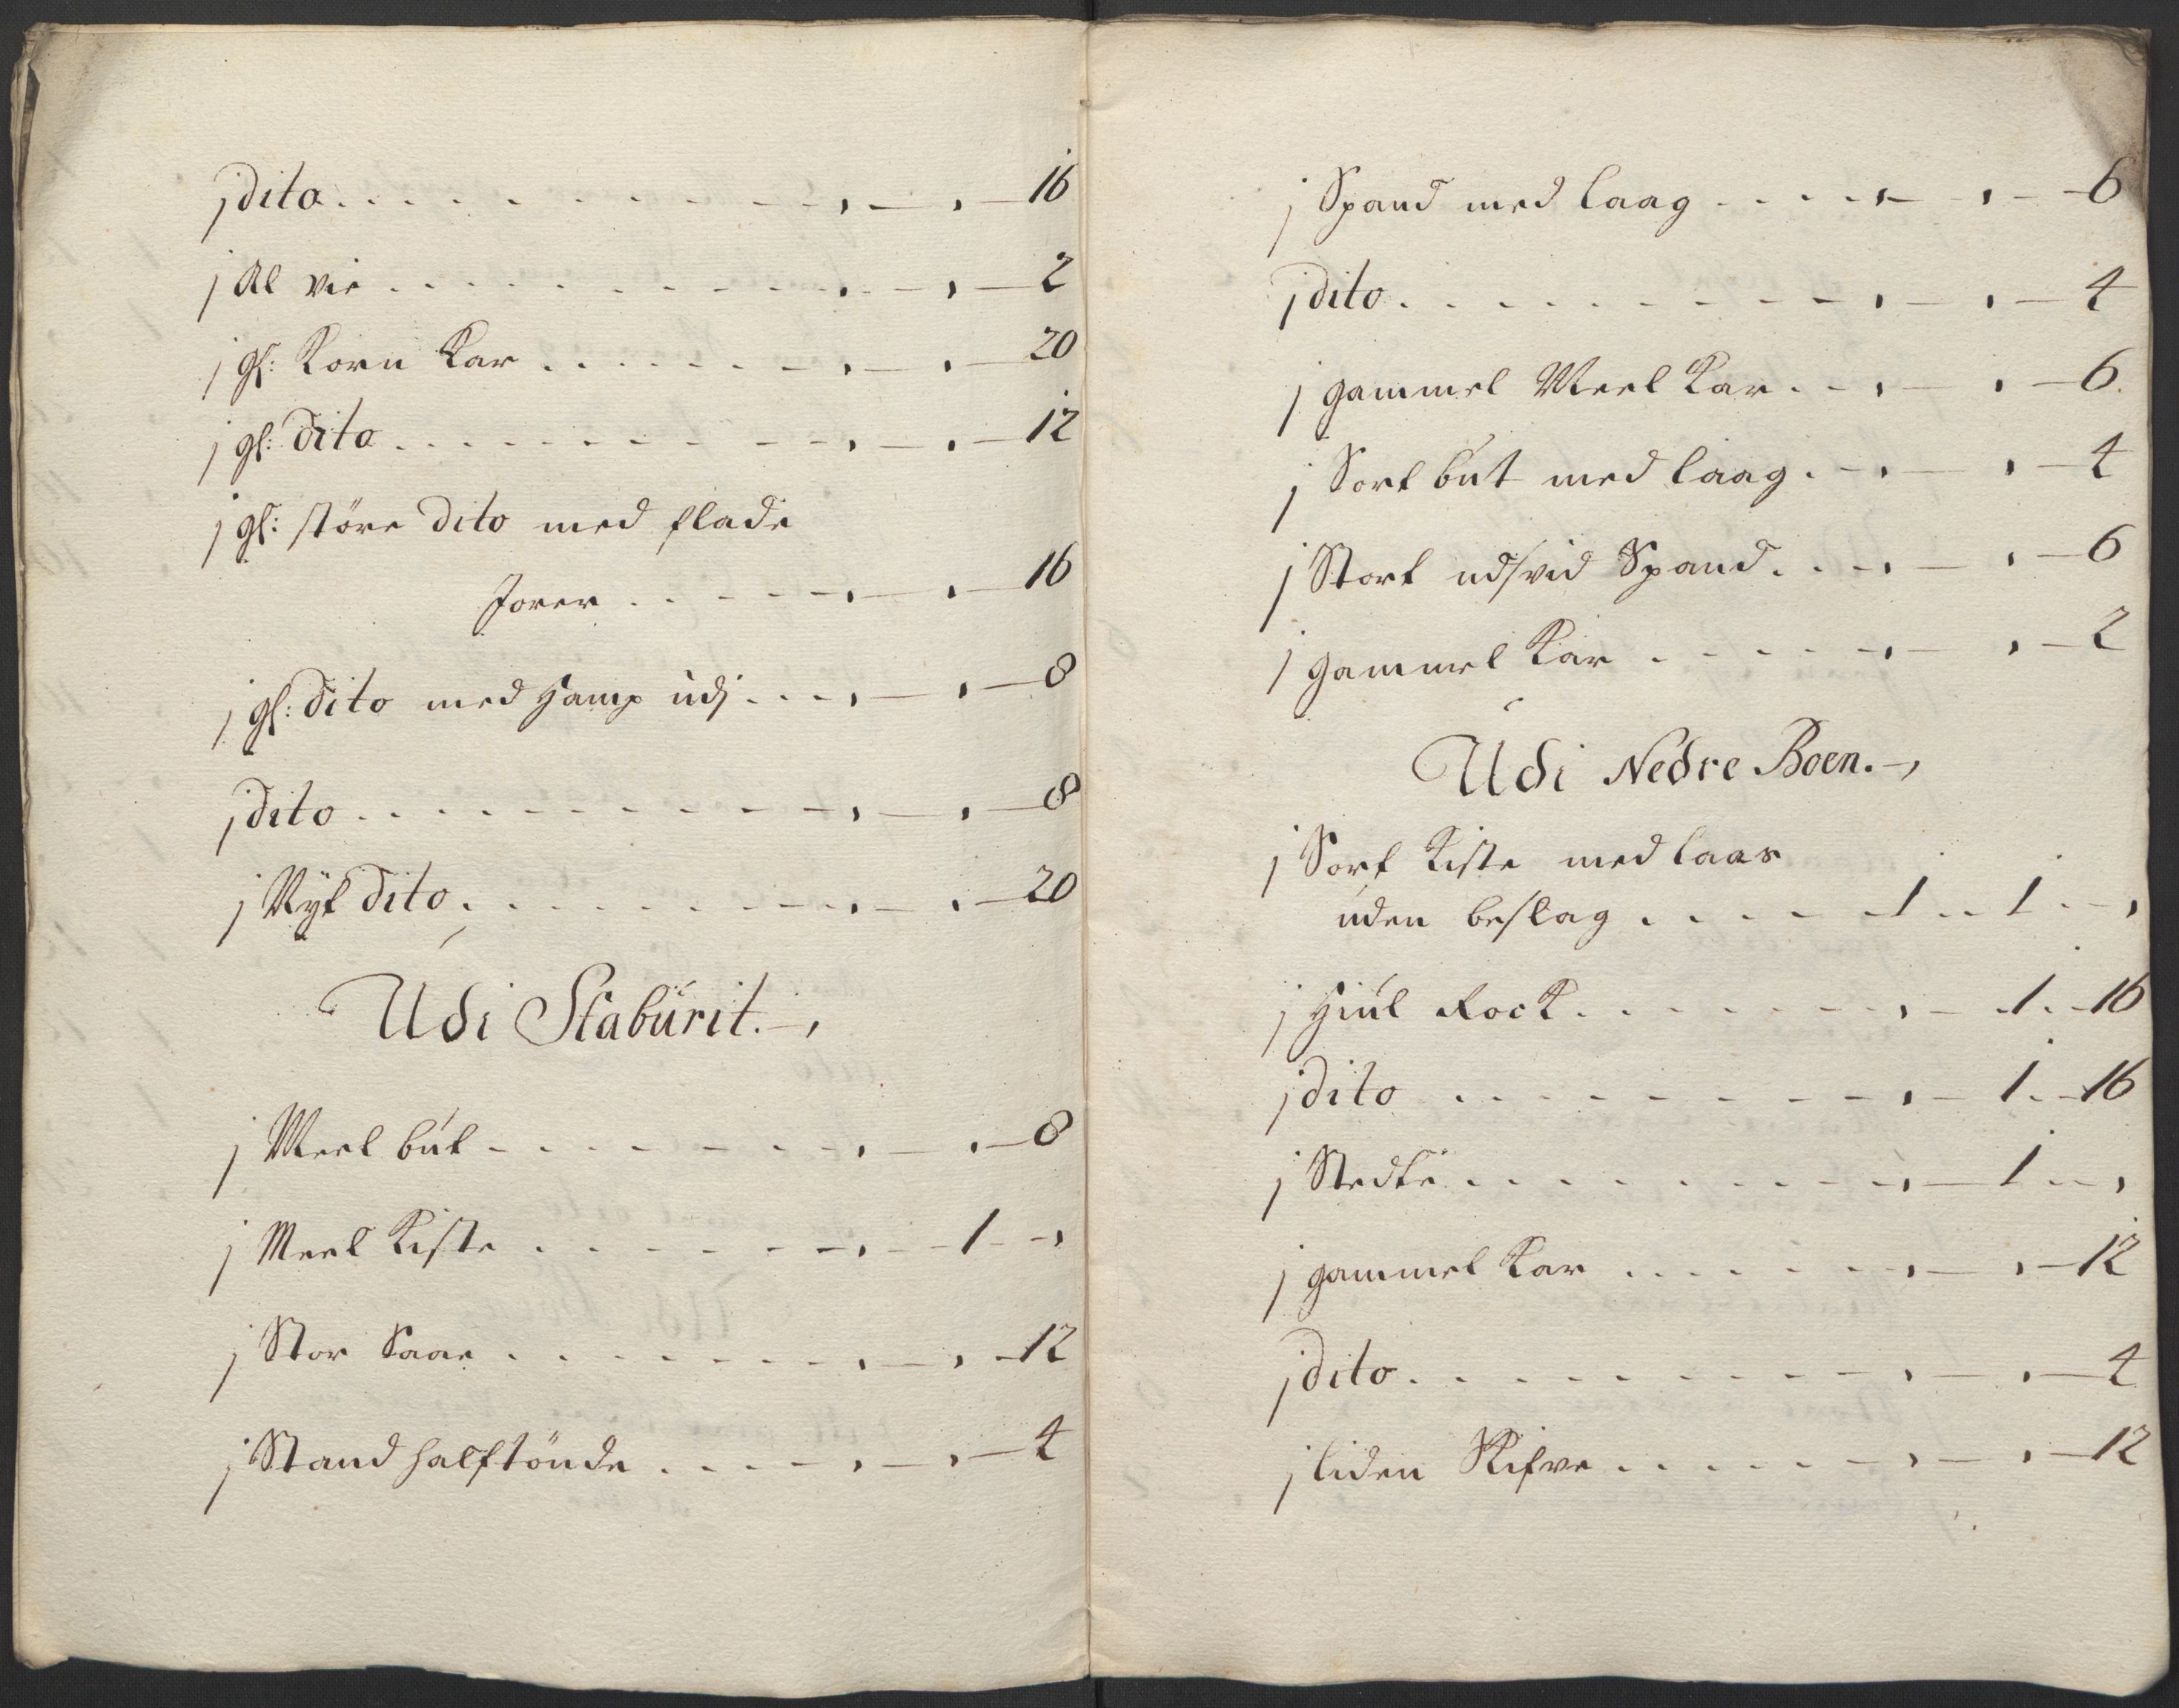 j dito . . . . . . . . . , — , — 16
j Al vie . . . . . . . . , — , — 2
j gl: Korn Kar . . . . . . , — , — 20
j gl: dito . . . . . . . . , — , — 12
j gl: störe dito med flade
Jorer . . . . . , — , — 16
j gl: dito med Hamp udj . . . , — , — 8
j dito . . . . . . . . . , — , — 8
j Nyt dito . . . . . . . . , — , — 20
Udi Staburit. —,
j Meel but . . . . . . . , — , — 8
j Meel Kiste . . . . . . . , — 1 — ,
j Stor Saae . . . . . . . , — , — 12
j Stand halftönde . . . . , — , — 4
j Spand med laag . . . . , — , — 6
j dito . . . . . . . . . , — , — 4
j gammel Meel Kar . . , — , — 6
j Sort but med laag . . , — , — 4
j Stort udsvid Spand . . . , — , — 6
j gammel Kar . . . . . , — , — 2
Udi Nedre Boen. —,
j Sort Kiste med laas
uden beslag . . . . 1 . . 1 . — ,
j Hiul Rock . . . . . . . , — 1 . — 16
j dito . . . . . . . . . , — 1 . — 16
j Stedke . . . . . . . . , — 1 . . ,
j gammel Kar . . . . . . , — , — 12
j dito . . . . . . . . . , — , — 4
j liden Skifve . . . . . . , — , — 12